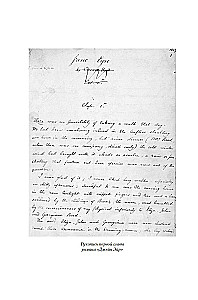 Jane Eyre
by Currer Bell
Vol. 1st
Chap. 1st
There was no possibility of taking a walk that day.
We had been wandering indeed in the leafless shrubbery
an hour in the morning, but since dinner (Mrs Reed
when there was no company, dined early) the cold winter
wind had brought with it clouds so sombre, a rain so pene-
trating that further out-door exercise was now out of the
question.
I was glad of it; I never liked long walks especially
on chilly afternoons; dreadful to me was the coming home
in the raw twilight with nipped fingers and toes and a heart
saddened by the chidings of Bessie, the nurse, and humbled
by the consciousness of my physical inferiority to Eliza, John
and Georgiana Reed.
The said Eliza, John and Georgiana were now clustered
round their mamma in the drawing-room; she lay
Рукопись первой главы
романа «Джейн Эйр»